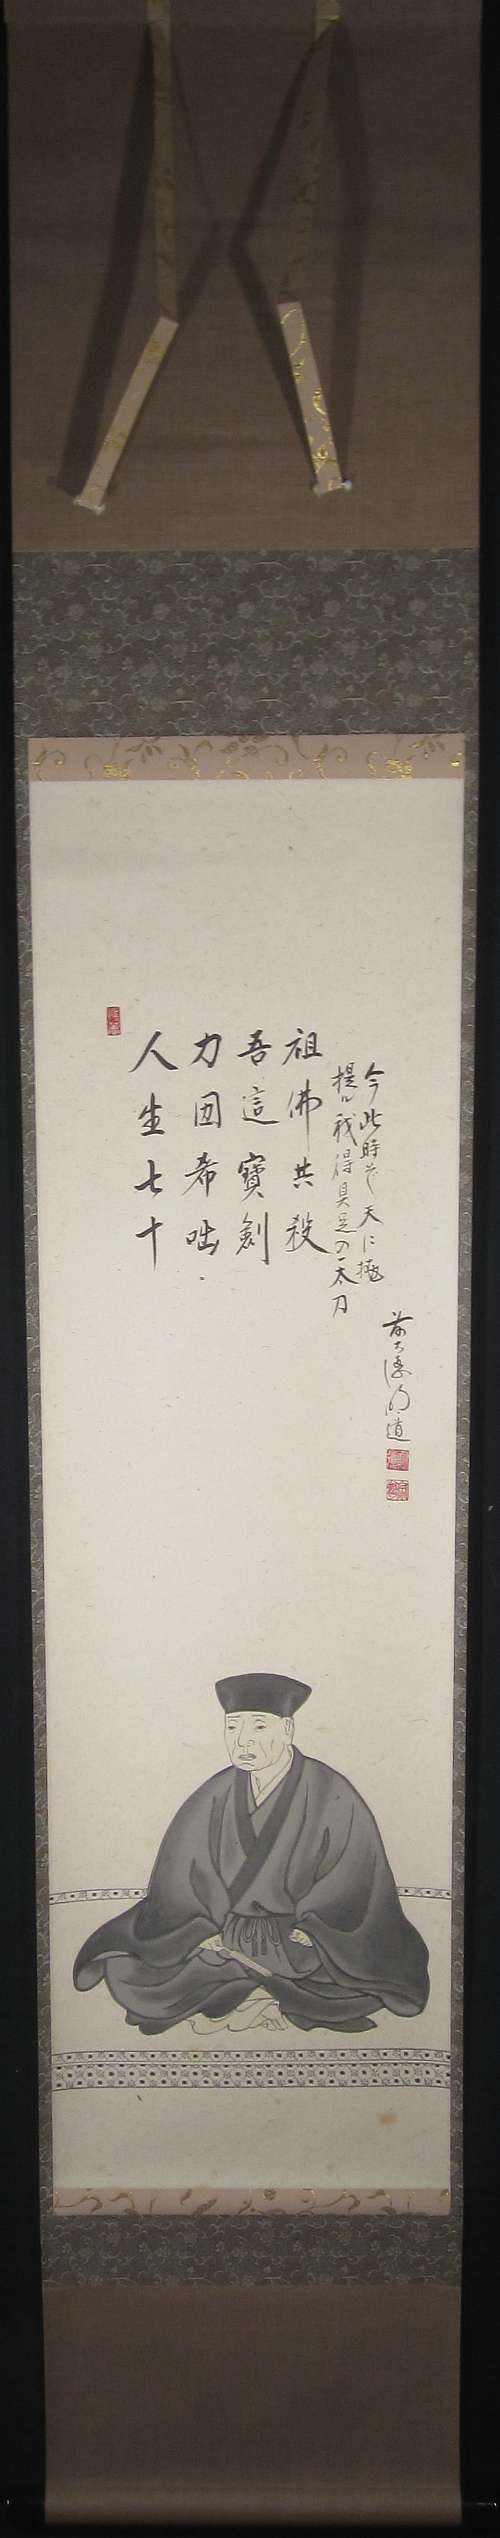 人生七十
力囲希咄
吾這寶劍
祖佛共殺
提ル我得具足の一太刀
今此時ぞ天に抛
前大徳